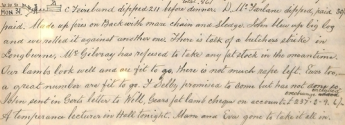 MON 31 C. Fernland dipped 211 before dinner. D. McFarlane dipped, paid 29/
paid. Made up fires on Back with more chain and Sledge. John blew up big log
and we rolled it against another one. There is talk of a butchers strike in
Longtowner. McGilvray has refused to take any fat stock in the meantime.
Our lambs look well and are fit to go. there is not much rape left. Ewes too,
a great number are fit to go. T Selby promise to come but has not done so
John sent in Cons letter to Will, Geans fat lamb cheque on account £37-2-9.
A Temperance lecturer in Hall tonight. Mum and Eve gone to take it all in.